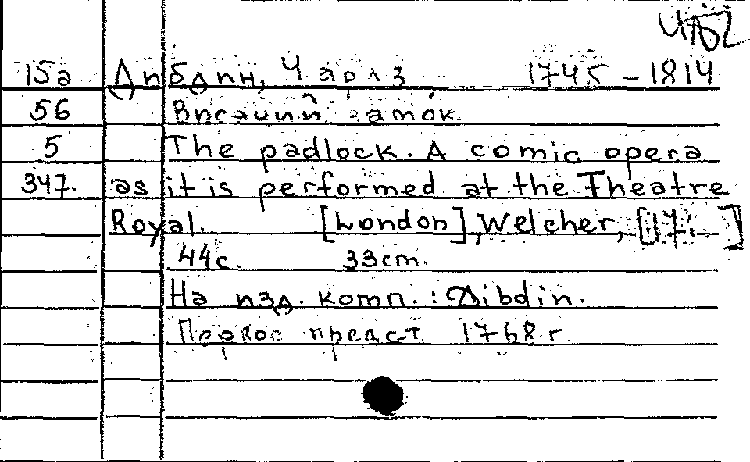 15а Дибдин, Чарлз 1745 – 1814
56 Висячий замок.
5 The padlock. A comic opera
347. as it is performed at the Theatre
Royal. [London], Welcher, [17..]
44с. 33cm.
На изд. комп.: Dibdin.
Первое предст 1768 г